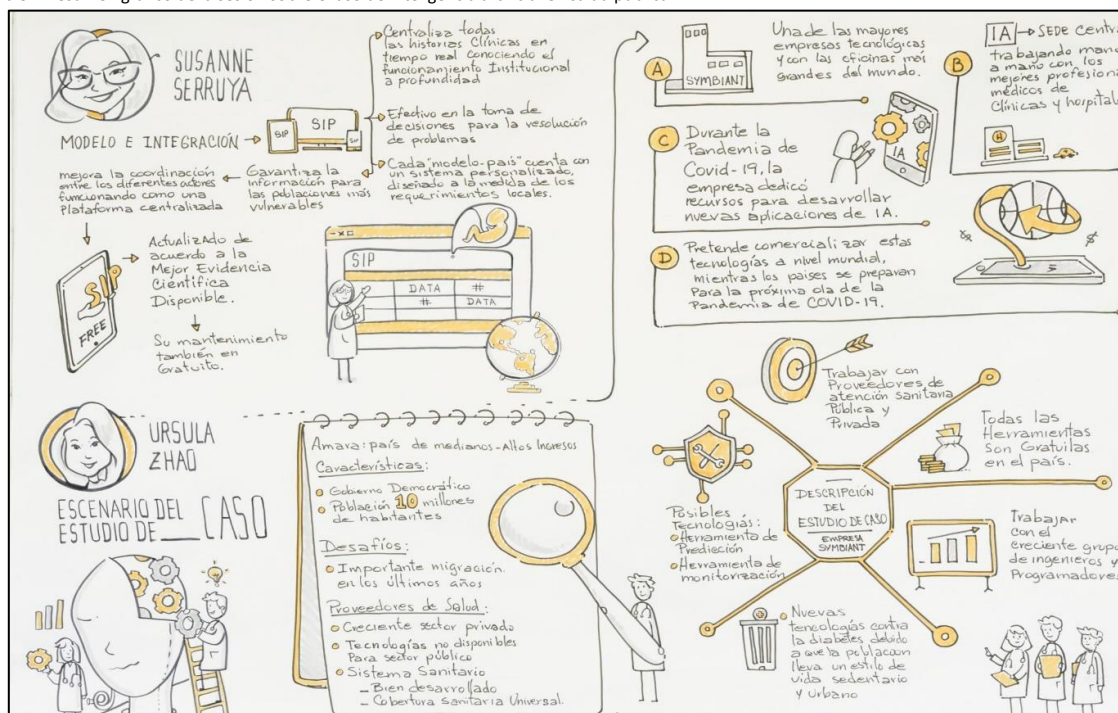 SUSANNE
SERRUYA
MODELO E INTEGRACIÓN
SIP
SIP
SIP
Centraliza todas
las historias clínicas en
tiempo real conociendo el
funcionamiento Institucional
a profundidad
Efectivo en la toma de
decisiones para la resolución
de problemas
Cada "modelo-país" cuenta con
un sistema personalizado,
diseñado a la medida de los
requerimientos locales.
Garantiza la
información para
las poblaciones más
vulnerables
mejora la coordinación
entre los diferentes actores
funcionando como una
Plataforma centralizada
SIP
FREE
Actualizado de
acuerdo a la
Mejor Evidencia
Científica
Disponible.
Su mantenimiento
también en
Gratuito.
SIP
DATA #
# DATA
A
SYMBIANT
Una de las mayores
empresas tecnológicas
y con las oficinas más
grandes del mundo.
B
IA → SEDE Centra
trabajando mano
a mano con los
mejores profesion
médicos de
Clínicas y hospital
H
C
Durante la
Pandemia de
Covid-19, la
empresa dedicó
recursos para desarrollar
nuevas aplicaciones de IA.
IA
D
Pretende comercializar estas
tecnologías a nivel mundial,
mientras los países se preparan
Para la próxima ola de la
Pandemia de COVID-19.
$ $
URSULA
ZHAO
ESCENARIO DEL
ESTUDIO DE CASO
Amara: país de medianos-Altos Ingresos
Características:
Gobierno Democrático
Población 10 millones
de habitantes
Desafíos:
Importante migración
en los últimos años
Proveedores de Salud:
Creciente sector privado
Tecnologías no disponibles
Para sector público
Sistema Sanitario
- Bien desarrollado
- Cobertura Sanitaria Universal.
DESCRIPCIÓN
DEL
ESTUDIO DE CASO
EMPRESA
SYMBIANT
Trabajar con
Proveedores de
atención sanitaria
Pública y
Privada
Todas las
Herramientas
Son Gratuitas
en el país.
Trabajar
con el
creciente grupo
de ingenieros y
Programadores
Nuevas
tencologías contra
la diabetes debido
a que la poblacion
lleva un estilo de
vida sedentario
y urbano
Posibles
Tecnologías:
Herramienta de
Predicción
Herramienta de
monitorización